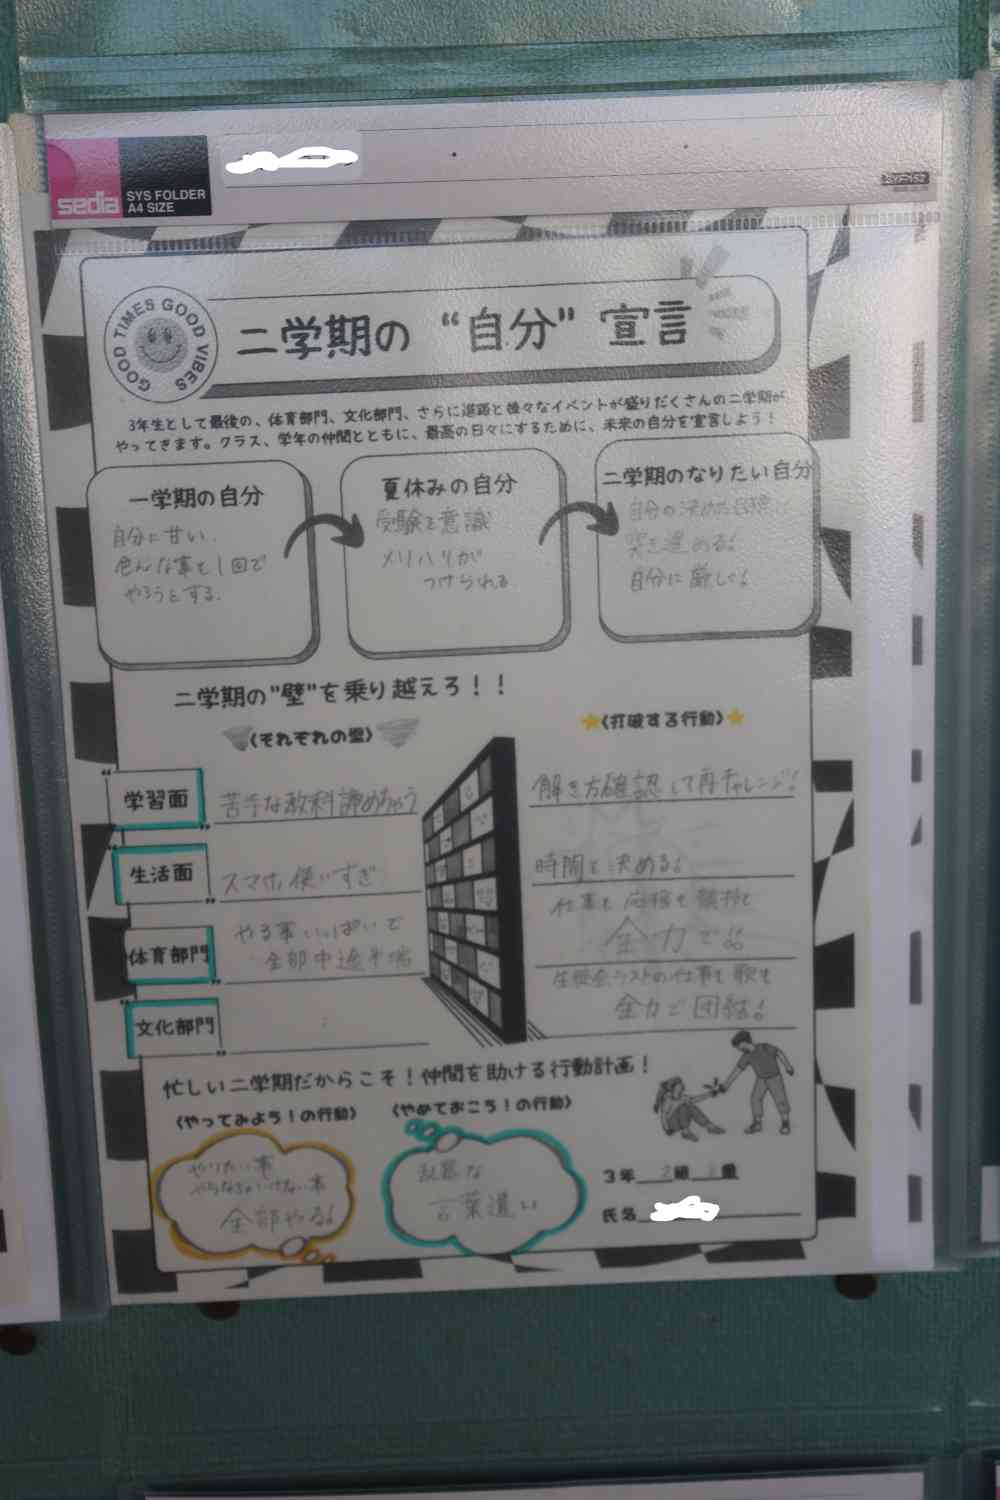 sedia
SYS FOLDER
A4 SIZE
GOOD TIMES GOOD VIBES
二学期の "自分" 宣言
3年生として最後の、体育部門、文化部門、さらに進路と様々なイベントが盛りだくさんの二学期が
やってきます。クラス、学年の仲間とともに、最高の日々にするために、未来の自分を宣言しよう！
一学期の自分
自分に甘い。
色んな事を1回で
やろうとする。
夏休みの自分
受験を意識
メリハリが
つけられる
二学期のなりたい自分
自分の決めた目標に
突き進める!
自分に厳しく!
二学期の"壁"を乗り越えろ！！
〈それぞれの壁〉
〈打破する行動〉
学習面
苦手な教科諦めちゃう
解き方確認して再チャレンジ!
生活面
スマホ使いすぎ
時間を決める!
体育部門
やる事いっぱいで
全部中途半端
仕事も応援も競技も
全力で!!
文化部門
生徒会ラストの仕事も歌も
全力で団結!
忙しい二学期だからこそ！仲間を助ける行動計画！
〈やってみよう！の行動〉
〈やめておこう！の行動〉
やりたい事
やらなきゃいけない事
全部やる!
乱暴な
言葉遣い
3年 2組 番
氏名